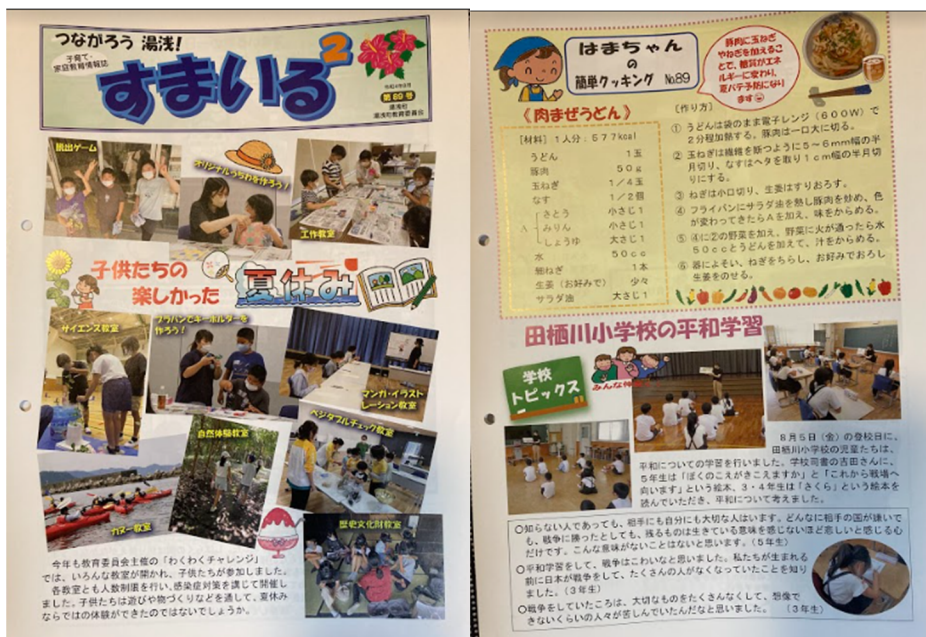 つながろう 湯浅！
子育て・
家庭教育情報誌
すまいる2
令和4年8月
第89号
湯浅町
湯浅町教育委員会
脱出ゲーム
オリジナルうちわを作ろう！
工作教室
子供たちの
楽しかった
夏休み
サイエンス教室
プラバンでキーホルダーを
作ろう！
マンガ・イラスト
レーション教室
自然体験教室
ベジタブルチェック教室
カヌー教室
歴史文化財教室
今年も教育委員会主催の「わくわくチャレンジ」
では、いろんな教室が開かれ、子供たちが参加しました。
各教室とも人数制限を行い、感染症対策を講じて開催し
ました。子供たちは遊びや物づくりなどを通して、夏休み
ならではの体験ができたのではないでしょうか。
はまちゃん
の
簡単クッキング No.89
豚肉に玉ねぎ
やねぎを加えるこ
とで、糖質がエネ
ルギーに変わり、
夏バテ予防になり
ます
《肉まぜうどん》
［材料］１人分：５７７kcal
うどん １玉
豚肉 ５０ｇ
玉ねぎ １／４玉
なす １／２個
A
さとう 小さじ１
みりん 小さじ１
しょうゆ 大さじ１
水 ５０ｃｃ
細ねぎ １本
生姜（お好みで） 少々
サラダ油 大さじ１
［作り方］
① うどんは袋のまま電子レンジ（６００Ｗ）で
２分程加熱する。豚肉は一口大に切る。
② 玉ねぎは繊維を断つように５～６ｍｍ幅の半
月切り、なすはヘタを取り１ｃｍ幅の半月切
りにする。
③ ねぎは小口切り、生姜はすりおろす。
④ フライパンにサラダ油を熱し豚肉を炒め、色
が変わってきたらＡを加え、味をからめる。
⑤ ④に②の野菜を加え、野菜に火が通ったら水
５０ｃｃとうどんを加えて、汁をからめる。
⑥ 器によそい、ねぎをちらし、お好みでおろし
生姜をのせる。
田栖川小学校の平和学習
学校
トピックス
みんな仲
８月５日（金）の登校日に、
田栖川小学校の児童たちは、
平和についての学習を行いました。学校司書の吉田さんに、
５年生は「ぼくのこえがきこえますか」と「これから戦場へ
向います」という絵本、３・４年生は「さくら」という絵本を
読んでいただき、平和について考えました。
○知らない人であっても、相手にも自分にも大切な人はいます。どんなに相手の国が嫌いで
も、戦争に勝ったとしても、残るものは生きている意味を感じないほど悲しいと感じる心
だけです。こんな意味がないことはないと思います。（５年生）
○平和学習をして、戦争はこわいなと思いました。私たちが生まれる
前に日本が戦争をして、たくさんの人がなくなっていたことを知り
ました。（３年生）
○戦争をしていたころは、大切なものをたくさんなくして、想像で
きないくらいの人々が苦しんでいたんだなと思いました。（３年生）